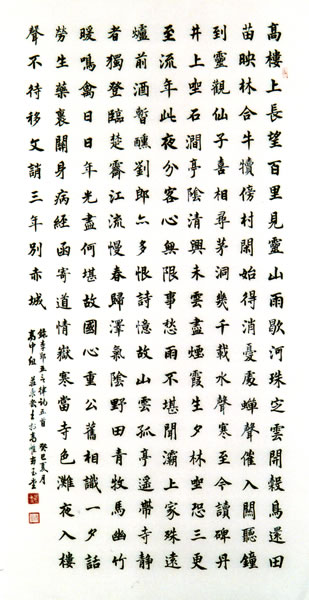 高樓上長望百里見靈山雨歇河珠定雲開穀鳥還田
苗映林合牛犢傍村閑始得消憂處蟬聲催入關聽鐘
到靈觀仙子喜相尋茅洞幾千載水聲寒至今讀碑丹
井上坐石澗亭陰清興未雲盡煙霞生夕林坐恐三更
至流年此夜分客心無限事愁雨不堪聞灞上家殊遠
爐前酒暫醺劉郎亦多恨詩憶故山雲孤亭遙帶寺靜
者獨登臨楚霽江流慢春歸澤氣陰野田青牧馬幽竹
暖鳴禽日日年光盡何堪故國心重公舊相識一夕話
勞生藥裹關身病經函寄道情嶽寒當寺色灘夜入樓
聲不待移文誚三年別赤城
錄李郢五言律詩五首 癸巳夏月
高中組